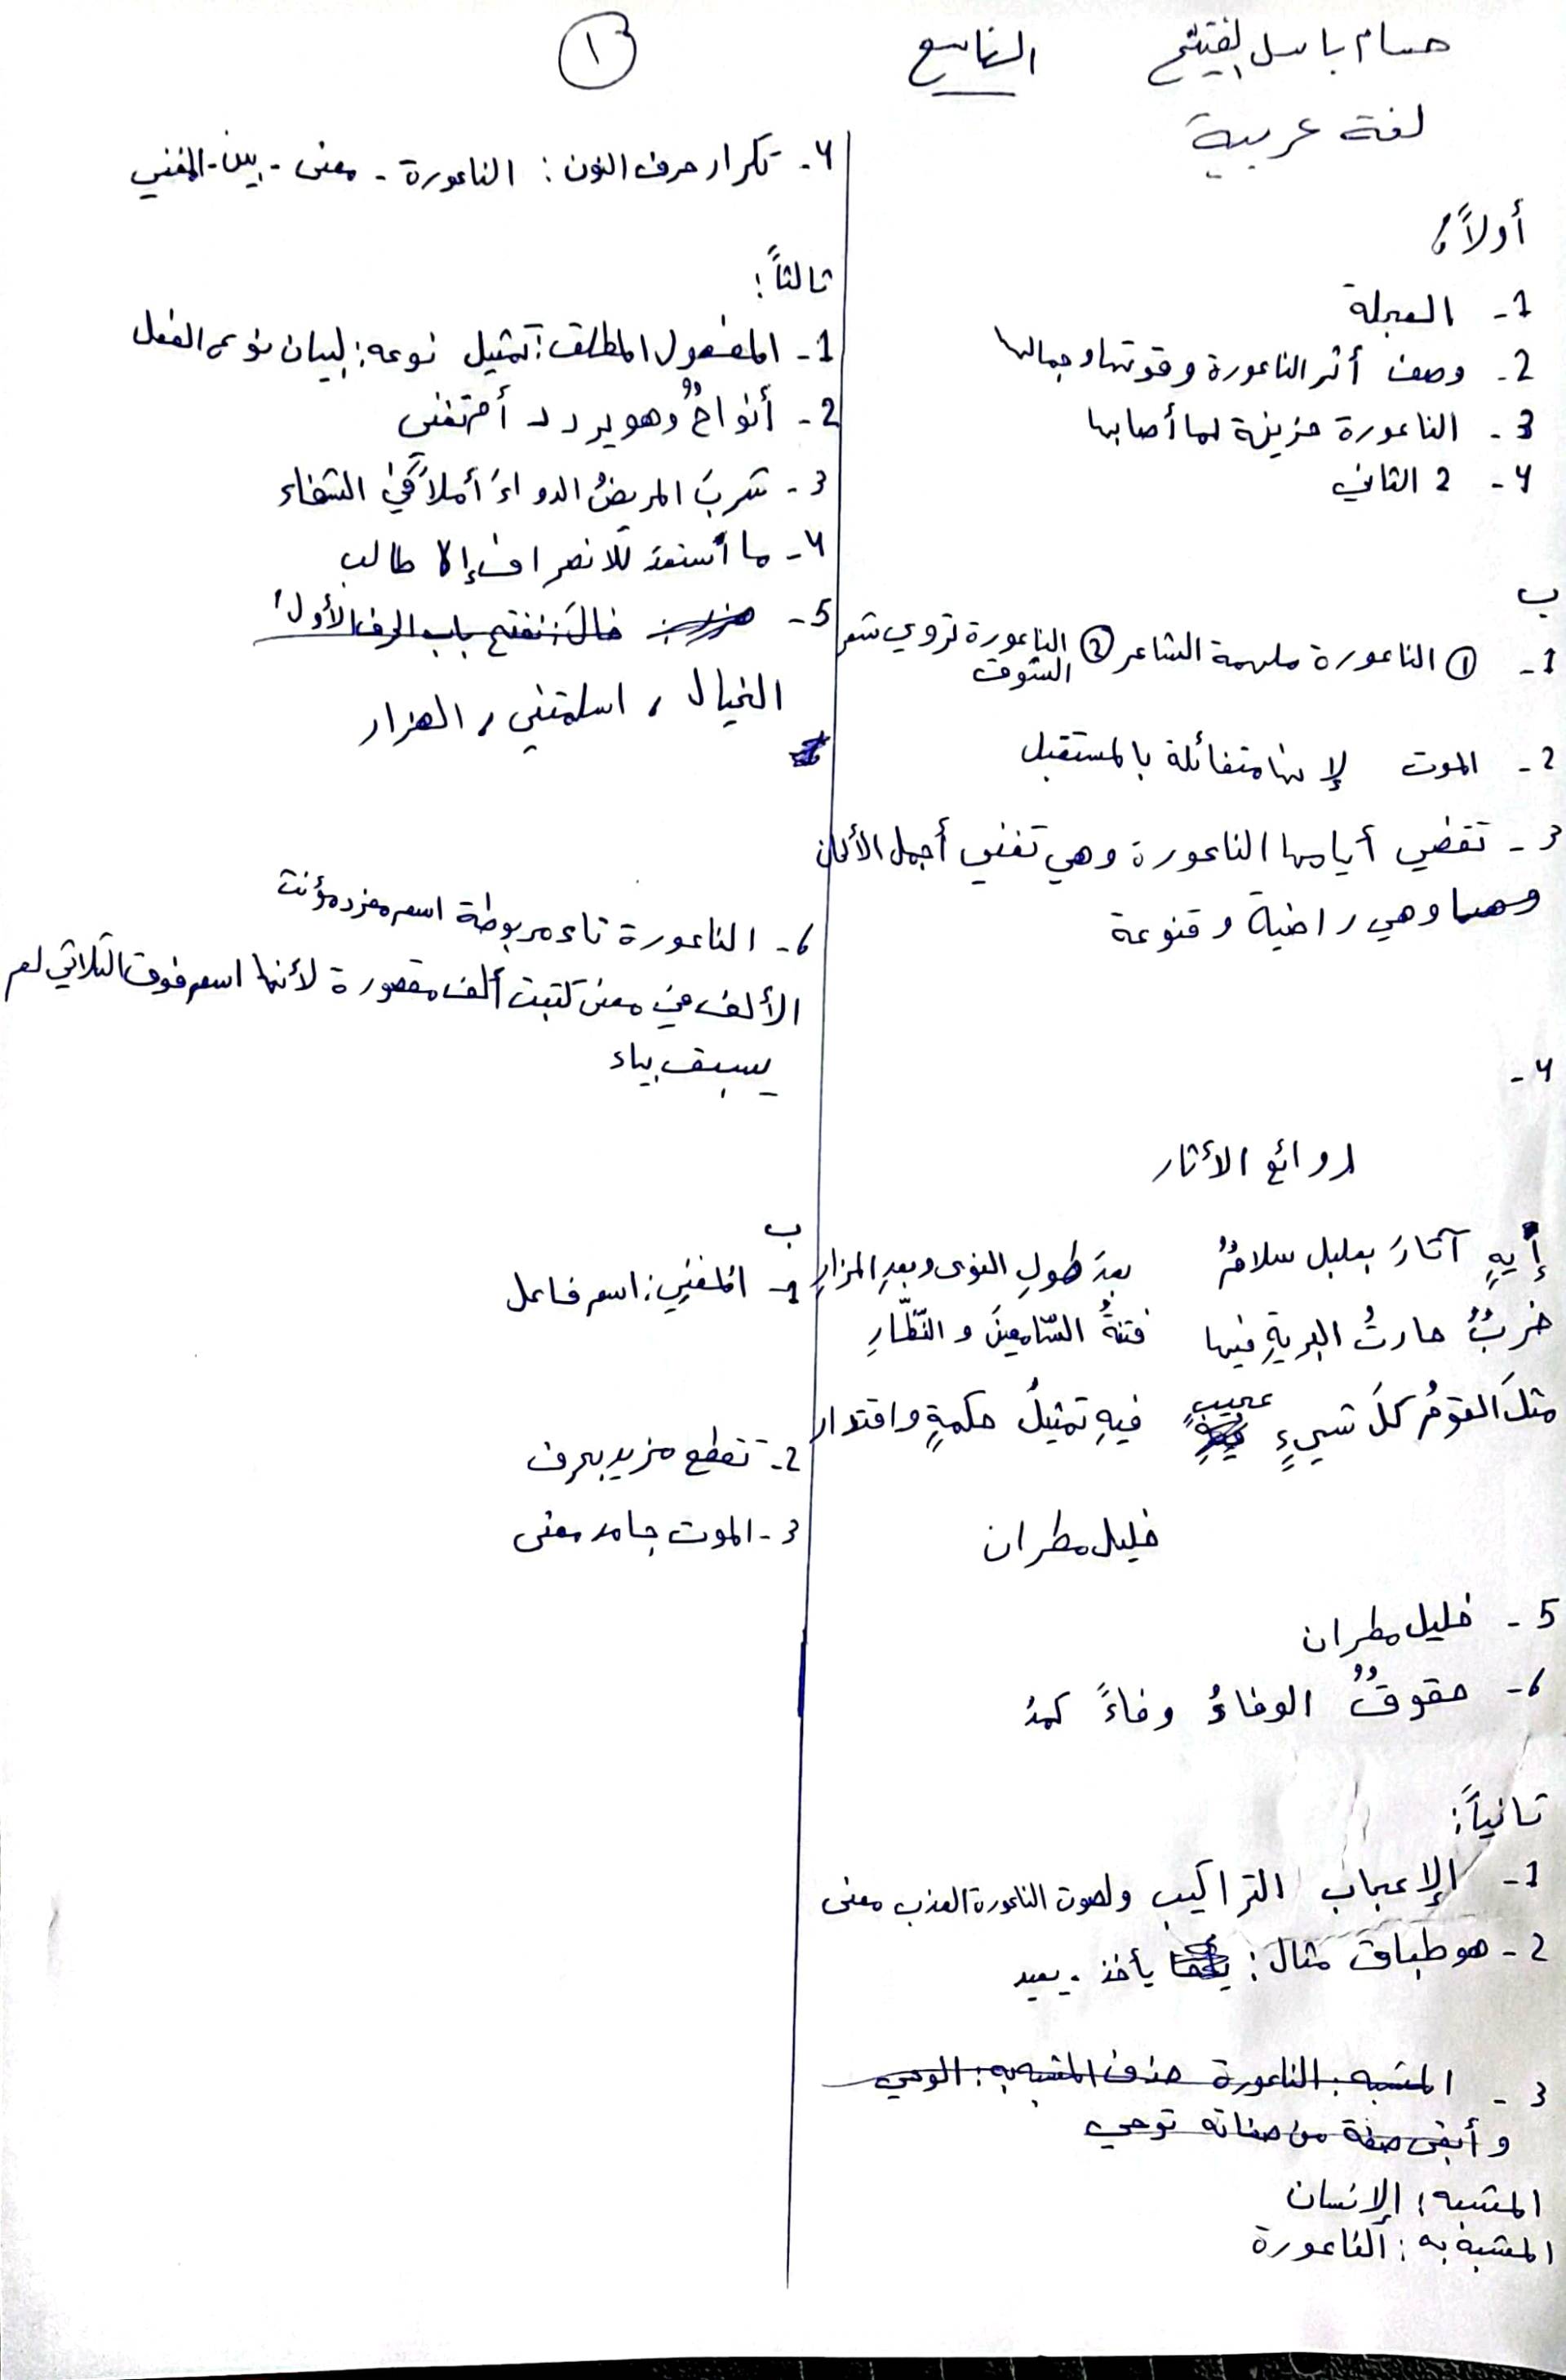 حسام باسل
التاسع
١
لغة عربية
أولاً:
1- العجلة
2- وصف أثر الناعورة وقوتها وجمالها
3- الناعورة حزينة لما أصابها
4- 2 الثاني
ب
1- ① الناعورة ملهمة الشاعر ② الناعورة تروي شعر
الشوق
2- الموت لإنها متفائلة بالمستقبل
3- تقضي أيامها الناعورة وهي تغني أجمل الألحان
وهي راضية وقنوعة
4-
روائع الأثار
إيهِ آثارَ بعلبل سلامٌ بعدَ طولِ النوى وبعدِ المزارِ
خربٌ حارتُ البريةِ فيها فتنةُ السّامعينَ و النّظّارِ
مثلَ القومُ كلَ شيءٍ عجيبٍ فيهِ تمثيلُ حكمةٍ واقتدار
خليل مطران
5- خليل مطران
6- حقوقٌ الوفاءُ وفاءً كمدُ
ثانياً:
1- الإعجاب التراكيب ولصوت الناعورة العذب معنى
2- هو طباق مثال: يأخذ - يعيد
3- المشبه: الناعورة حذف المشبه به: الوحي
وأبقى صفة من صفاته توحي
المشبه: الإنسان
المشبه به: الناعورة
4- تكرار حرف النون: الناعورة - معنى - بين - المغني
ثالثاً:
1- المفعول المطلق: تمثيل نوعه: لبيان نوع الفعل
2- أنواحٌ وهو يردد أم تغني
3- شربَ المريضُ الدواءَ أملاً في الشفاء
4- ما استعد للانصراف إلا طالب
5- خالَ: نفتح باب الحرف الأول
الخيال، اسلمتني، الهزار
6- الناعورة تاء مربوطة اسم مفرد مؤنث
الألف في معنى كتبت ألف مقصورة لأنها اسم فوق الثلاثي لم
يسبق بياء
ب
1- المغني: اسم فاعل
2- تقطع مزيد بحرف
3- الموت جامد معنى